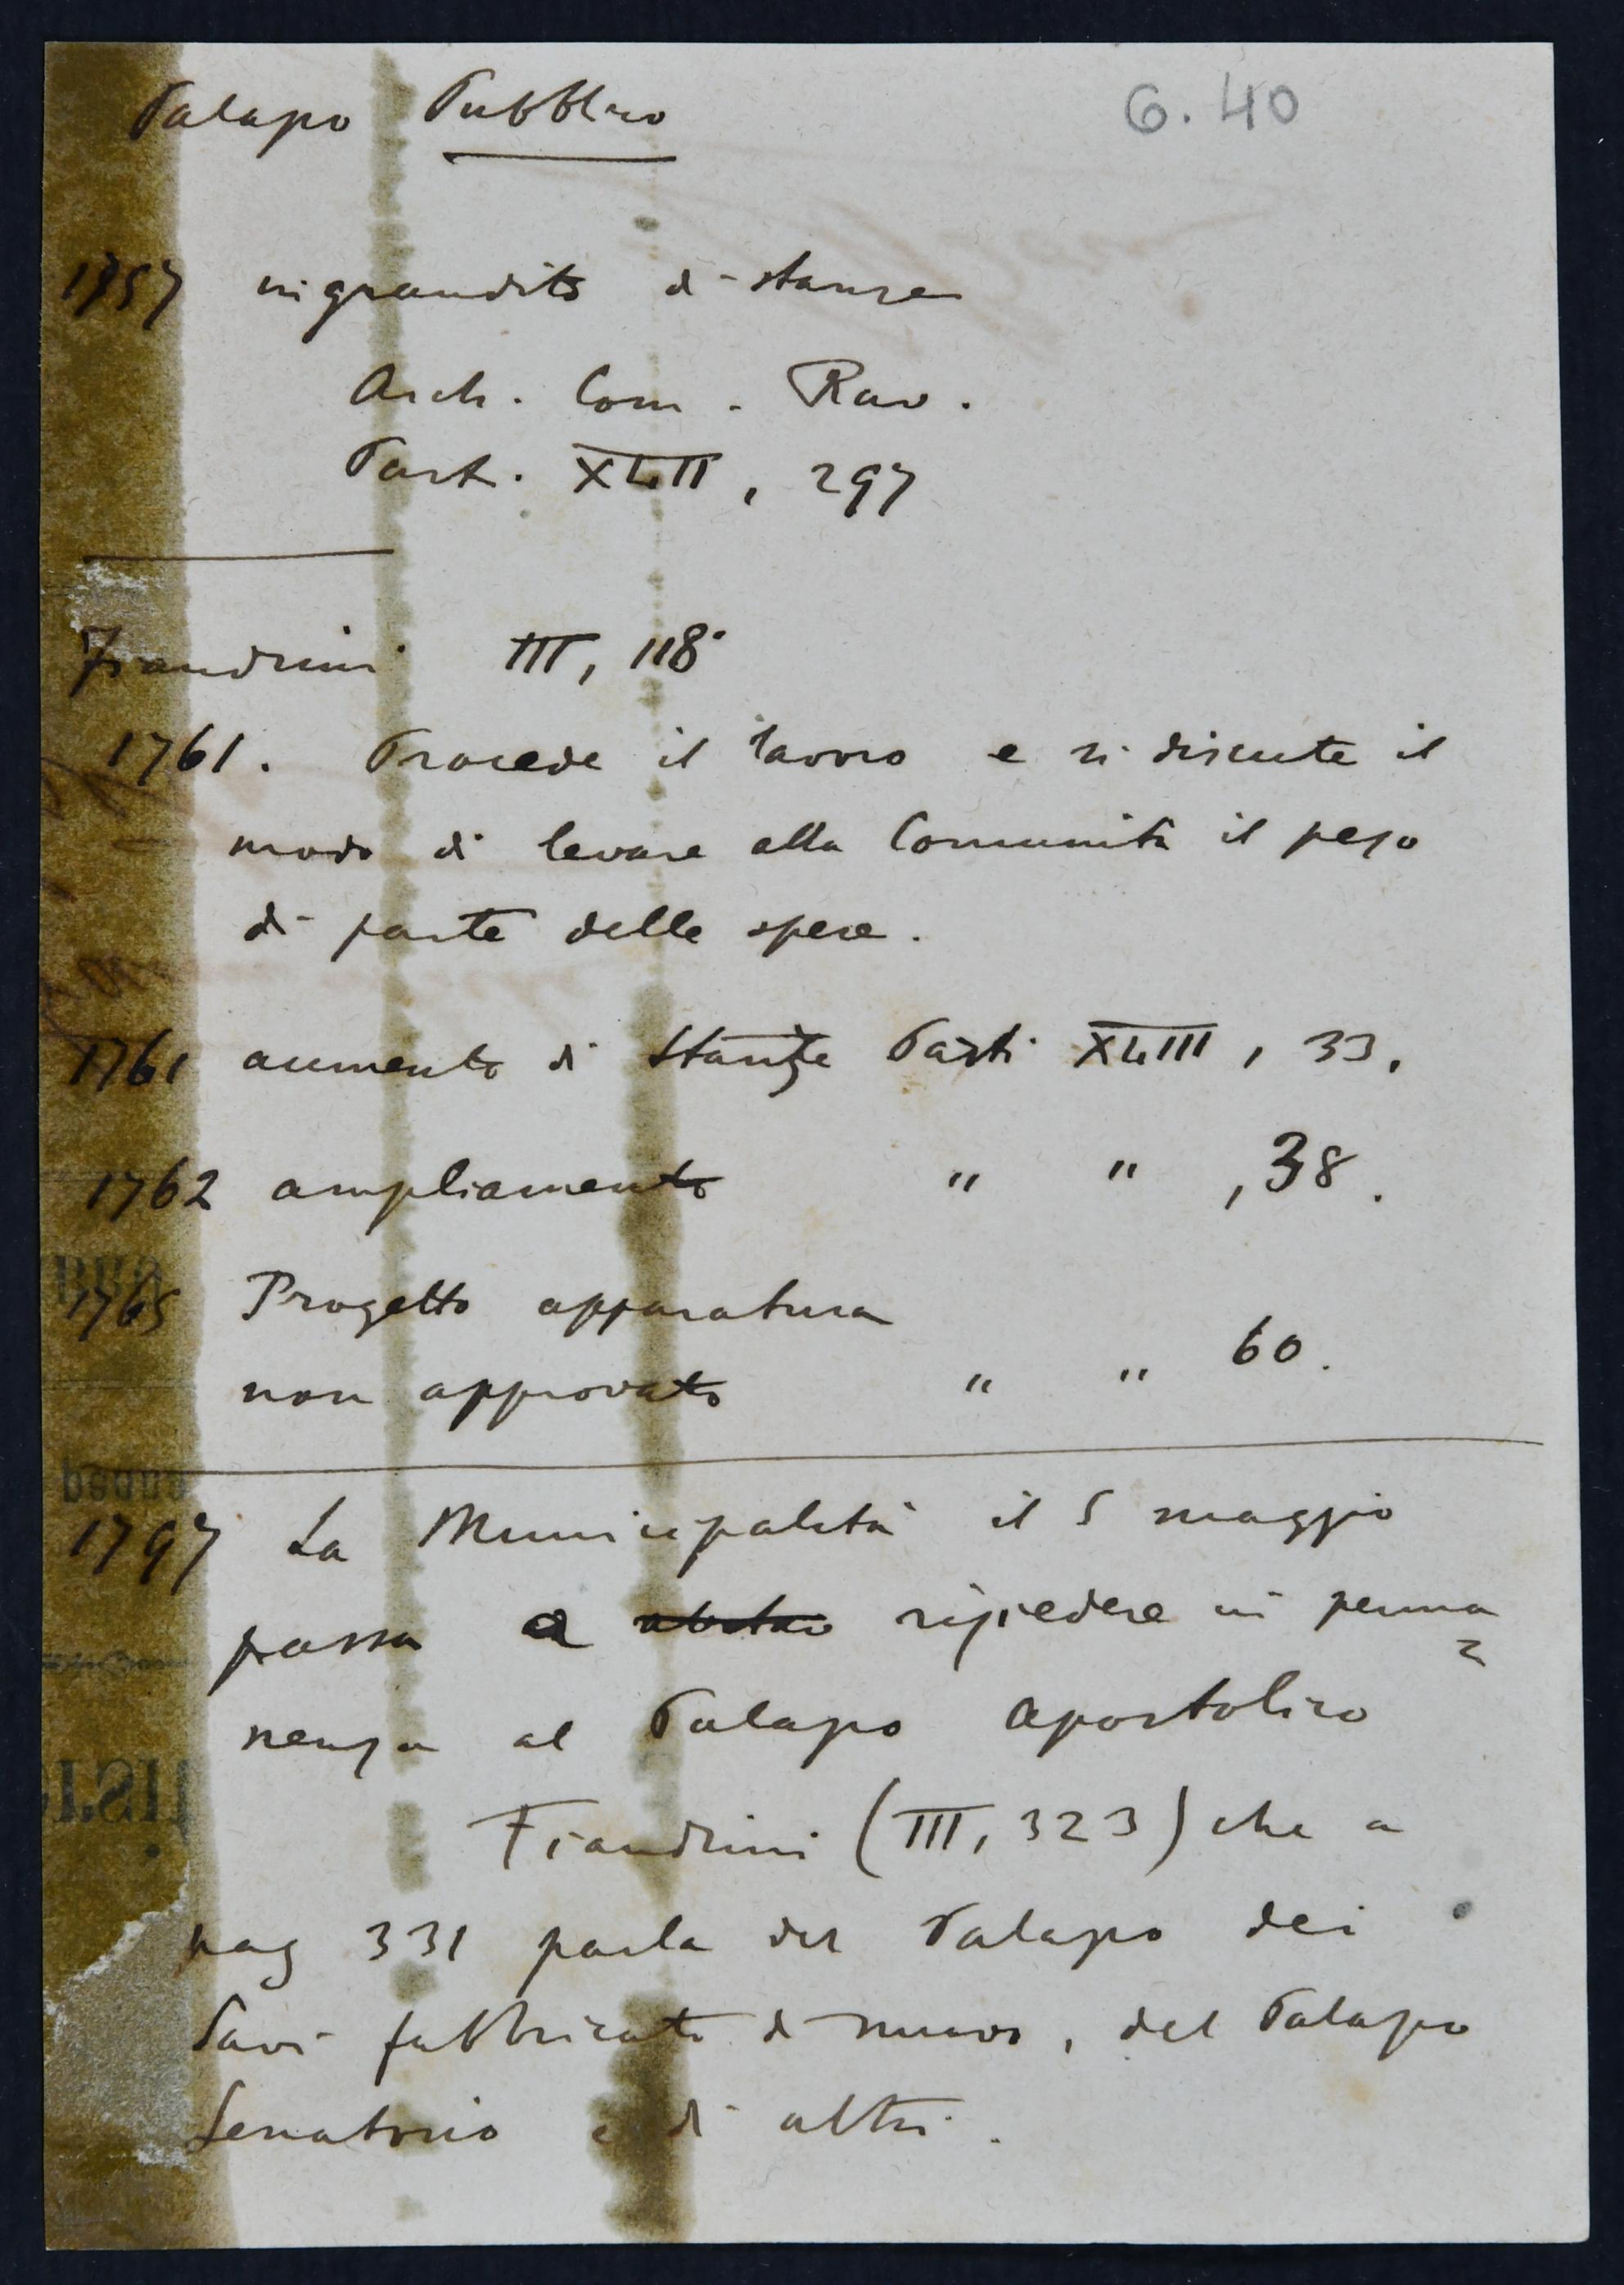 Palazzo Pubblico
6.40
1757 ingrandito di stanze
Arch. Com. Rav.
Part. XLII, 297
Fiandrini III, 118
1761. Procede il lavoro e si discute il
modo di levare alla Comunità il peso
di parte delle spese.
1761 aumento di stanze Parti XLIII, 33.
1762 ampliamento " " , 38.
1765 Progetto apparatura
non approvato " " 60.
1797 La Municipalità il 5 maggio
passa a risiedere in perma
nenza al Palazzo apostolico
Fiandrini (III, 323) che a
pag 331 parla del Palazzo dei
Savi fabbricato di nuovo, del Palazzo
Senatorio e di altri.